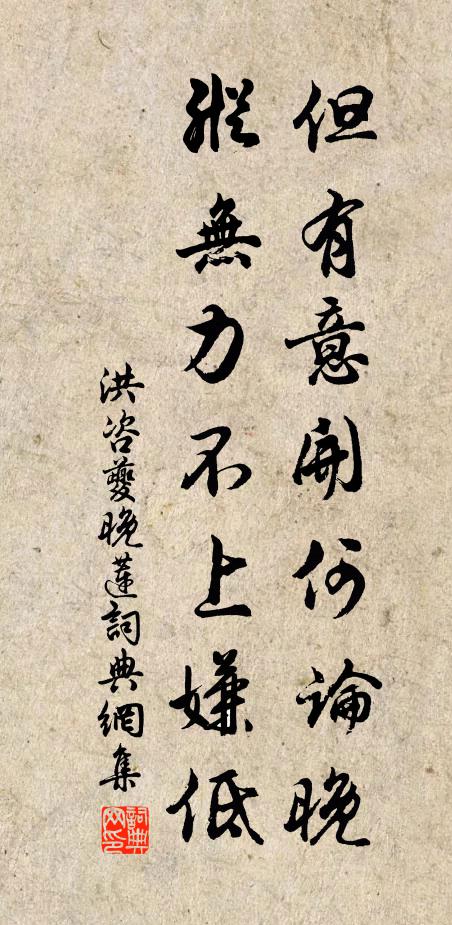 但有意開何論晚
縱無力不上嫌低
洪咨夔晚蓮詞典網集
詞典网印